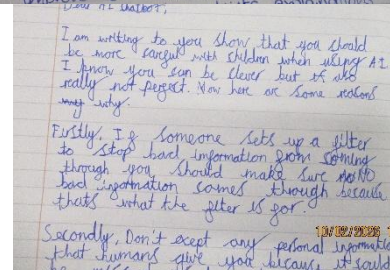 Dear AI chatbot,
I am writing to you show that you should
be more careful with children when using AI
I know you can be clever but it also
really not perfect. Now here are some reasons
why.
Firstly, If someone sets up a filter
to stop bad information from coming
through you should make sure NO
bad information comes through because
thats what the filter is for.
10/02/2026
Secondly, Don't except any personal information
that humans give you because it could